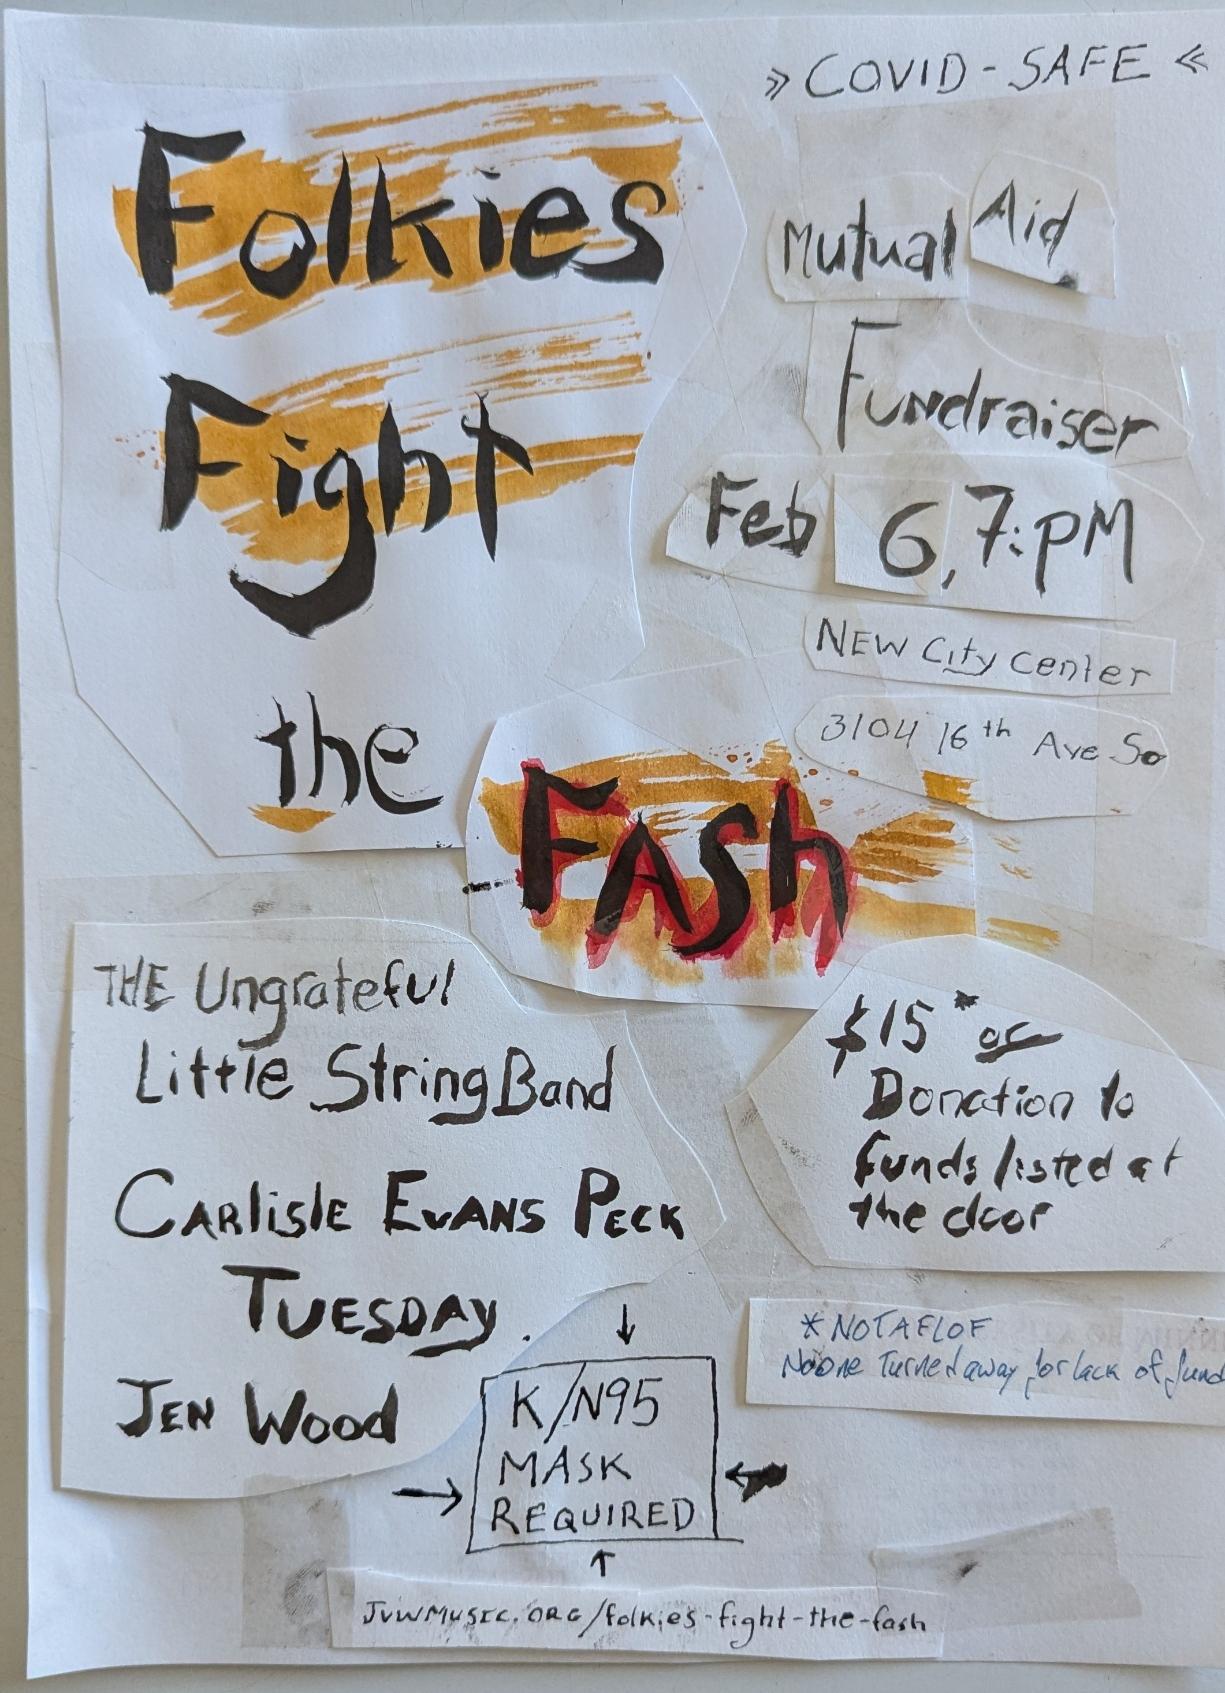 » COVID-SAFE «
Folkies
Fight
the
Fash
Mutual Aid
Fundraiser
Feb 6, 7:PM
NEW City Center
3104 16th Ave So
THE Ungrateful
Little StringBand
CARlisle EVANS PECK
TUESDAY.
JEN Wood
$15* or
Donation to
funds listed at
the door
*NOTAFLOF
No one Turned away for lack of fund
K/N95
MASK
REQUIRED
JVWMUSIC.ORG/folkies-fight-the-fash